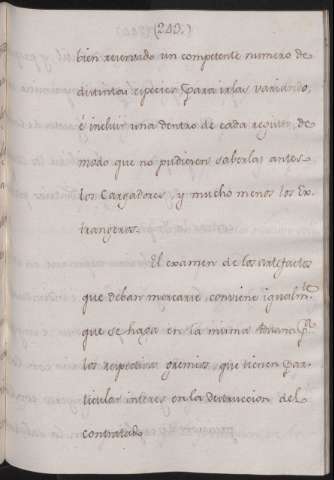 (249.)
bien reservado un competente numero de
distintas especies para irlas variando,
é incluir una dentro de cada registro, de
modo que no pudiesen saberlas antes
los Cargadores, y mucho menos los Ex-
trangeros.
El examen de los artefactos
que deban marcarse, conviene igualm.te
que se haga en la misma Aduana p.r
los respectivos gremios, que tienen par-
ticular interes en la destruccion del
contrabdo